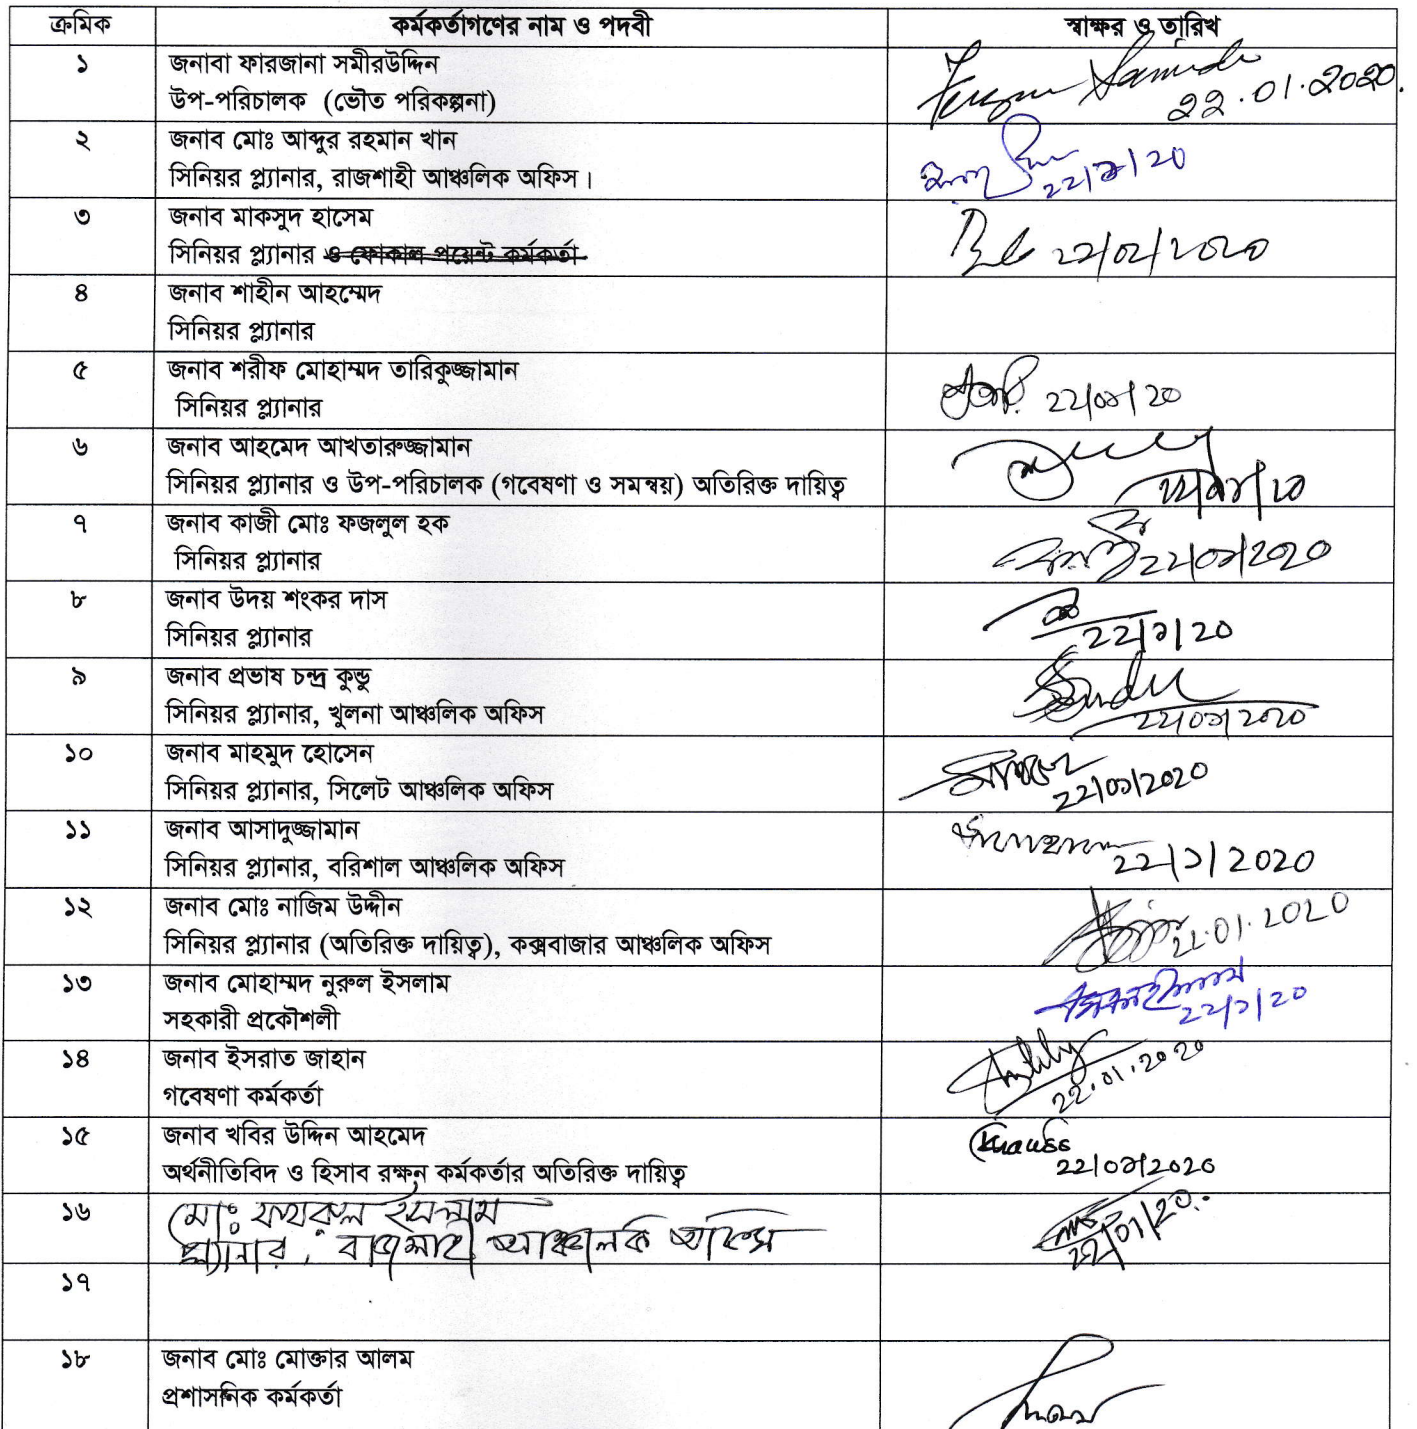 ক্রমিক কর্মকর্তাগণের নাম ও পদবী স্বাক্ষর ও তারিখ
১ জনাবা ফারজানা সমীরউদ্দিন
উপ-পরিচালক (ভৌত পরিকল্পনা) 22.01.2020.
২ জনাব মোঃ আব্দুর রহমান খান
সিনিয়র প্ল্যানার, রাজশাহী আঞ্চলিক অফিস। ২২/১/২০
৩ জনাব মাকসুদ হাসেম
সিনিয়র প্ল্যানার ও ফোকাল পয়েন্ট কর্মকর্তা ২২/০১/২০২০
৪ জনাব শাহীন আহম্মেদ
সিনিয়র প্ল্যানার
৫ জনাব শরীফ মোহাম্মদ তারিকুজ্জামান
সিনিয়র প্ল্যানার ২২/০১/২০
৬ জনাব আহমেদ আখতারুজ্জামান
সিনিয়র প্ল্যানার ও উপ-পরিচালক (গবেষণা ও সমন্বয়) অতিরিক্ত দায়িত্ব ২২/০১/২০
৭ জনাব কাজী মোঃ ফজলুল হক
সিনিয়র প্ল্যানার ২২/০১/২০২০
৮ জনাব উদয় শংকর দাস
সিনিয়র প্ল্যানার ২২/১/২০
৯ জনাব প্রভাষ চন্দ্র কুন্ডু
সিনিয়র প্ল্যানার, খুলনা আঞ্চলিক অফিস ২২/০১/২০২০
১০ জনাব মাহমুদ হোসেন
সিনিয়র প্ল্যানার, সিলেট আঞ্চলিক অফিস ২২/০১/২০২০
১১ জনাব আসাদুজ্জামান
সিনিয়র প্ল্যানার, বরিশাল আঞ্চলিক অফিস ২২/১/২০২০
১২ জনাব মোঃ নাজিম উদ্দীন
সিনিয়র প্ল্যানার (অতিরিক্ত দায়িত্ব), কক্সবাজার আঞ্চলিক অফিস 22.01.2020
১৩ জনাব মোহাম্মদ নুরুল ইসলাম
সহকারী প্রকৌশলী ২২/১/২০
১৪ জনাব ইসরাত জাহান
গবেষণা কর্মকর্তা 22.01.2020
১৫ জনাব খবির উদ্দিন আহমেদ
অর্থনীতিবিদ ও হিসাব রক্ষন কর্মকর্তার অতিরিক্ত দায়িত্ব ২২/০১/২০২০
১৬ মোঃ ফখরুল ইসলাম
প্ল্যানার, রাজশাহী আঞ্চলিক অফিস 22/01/20.
১৭
১৮ জনাব মোঃ মোক্তার আলম
প্রশাসনিক কর্মকর্তা